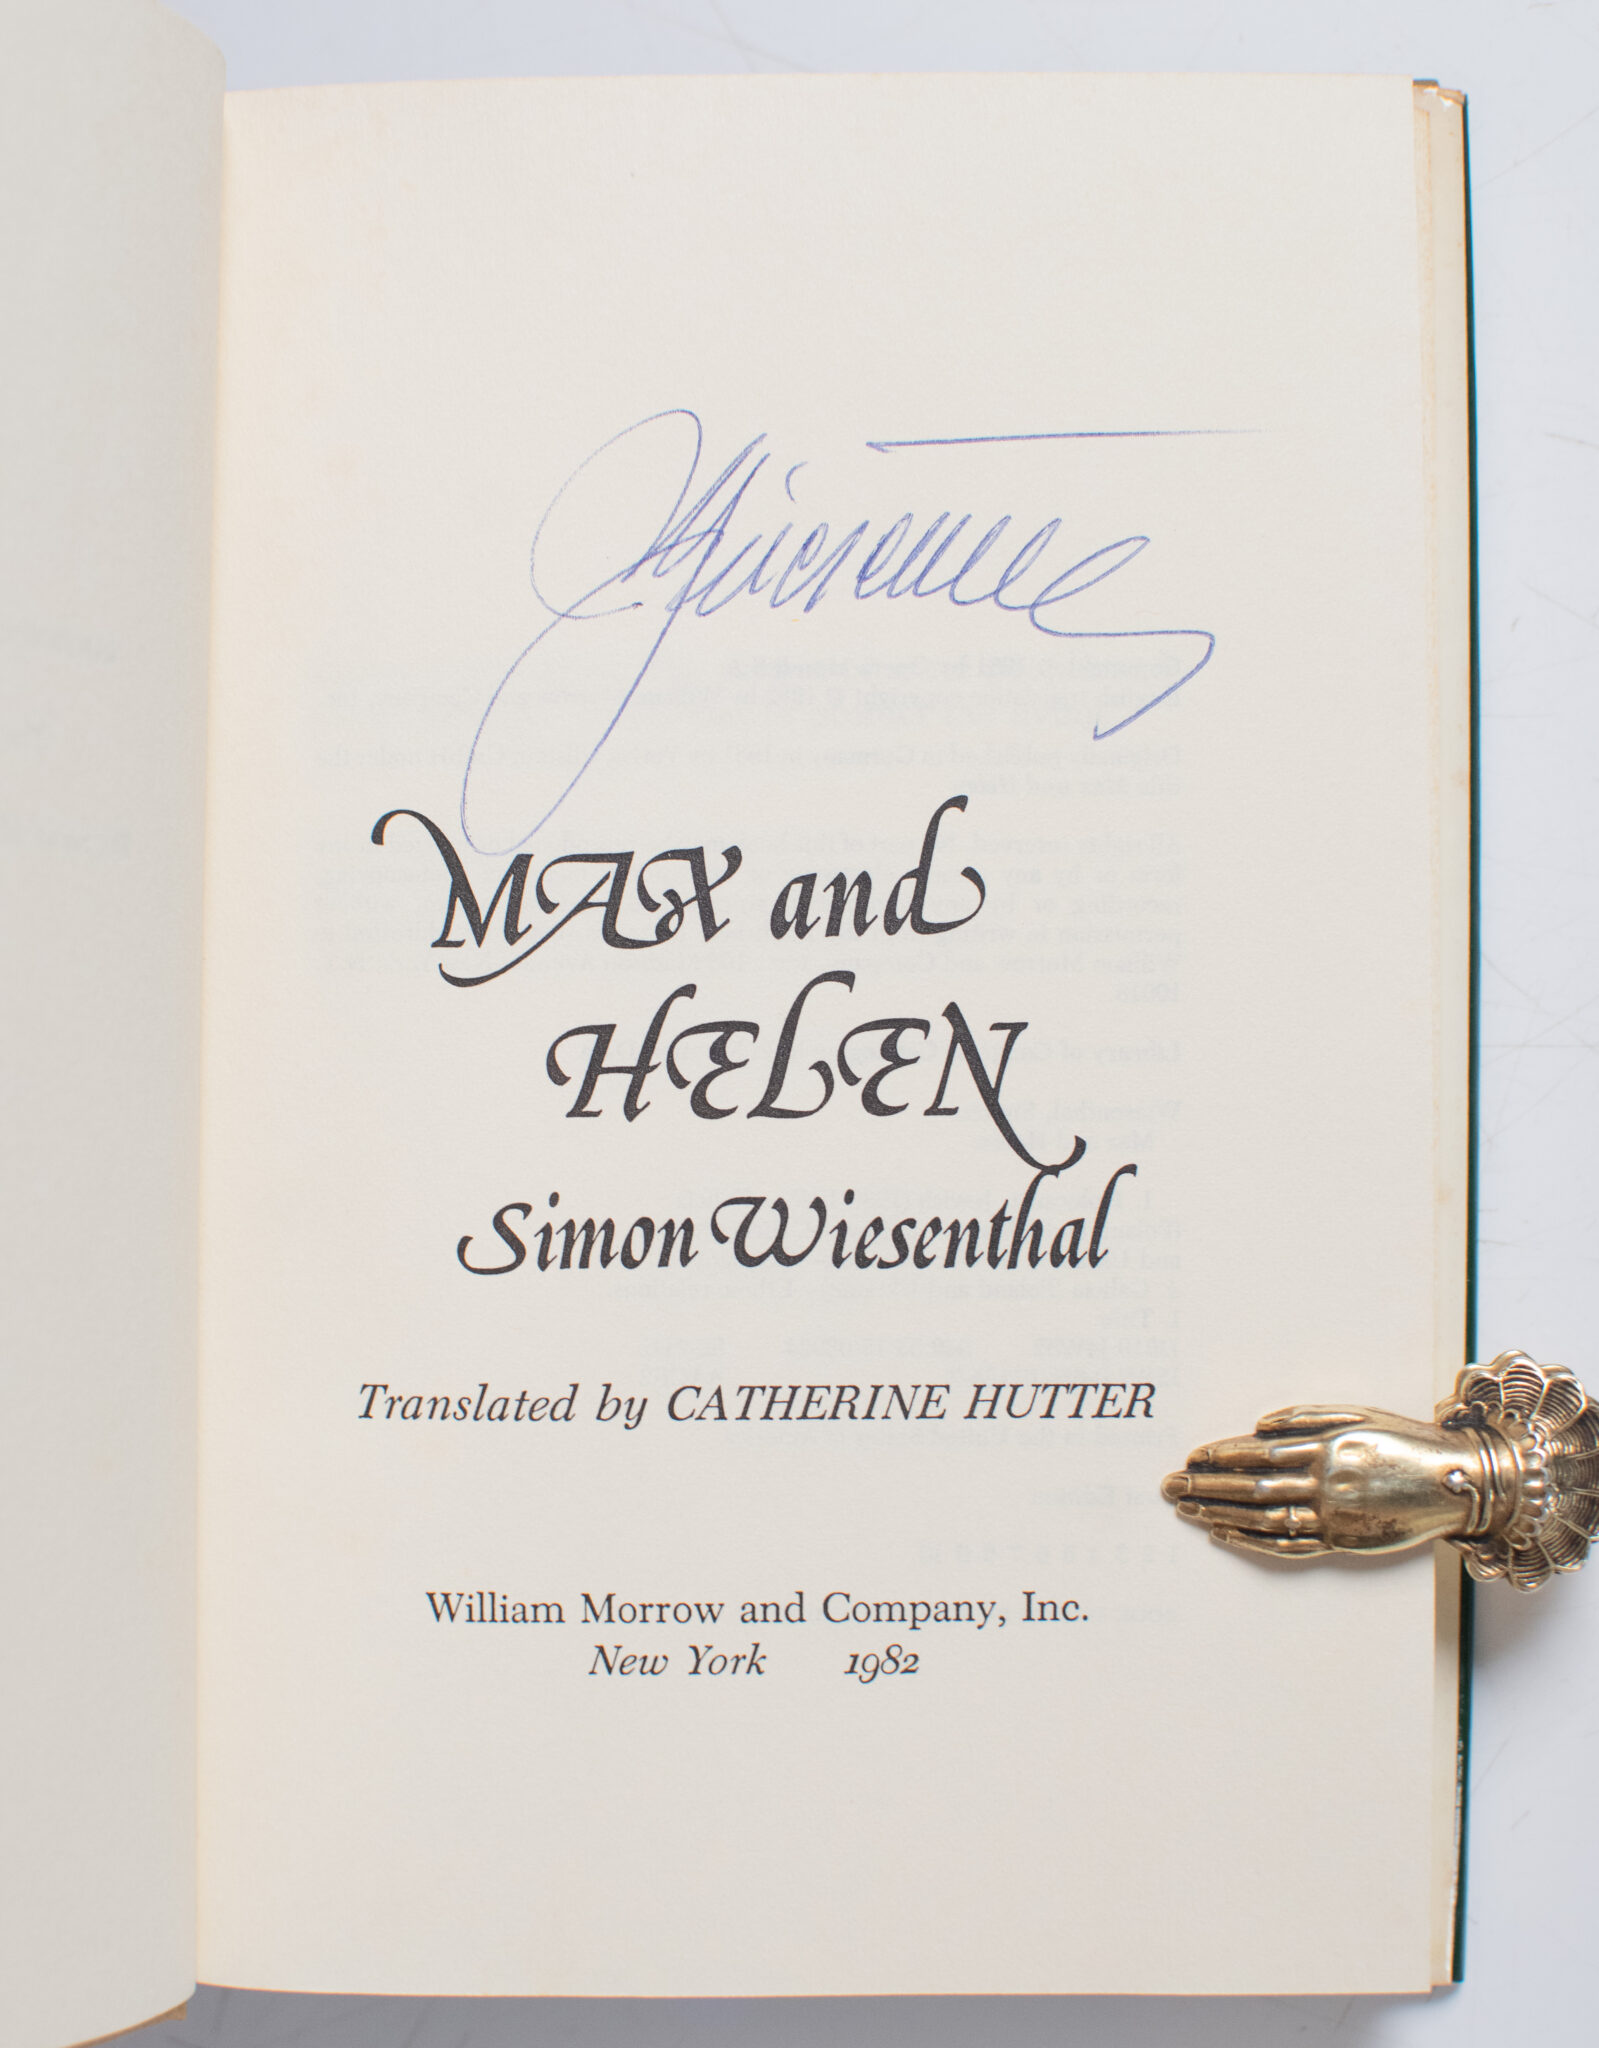 MAX and
HELEN
Simon Wiesenthal
Translated by CATHERINE HUTTER
William Morrow and Company, Inc.
New York 1982